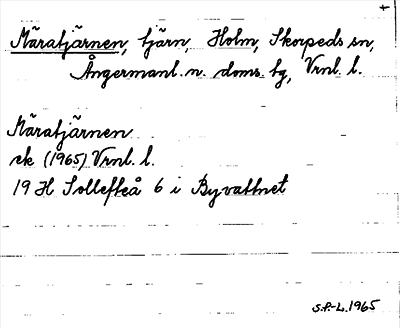 Märatjärnen, tjärn, Holm, Skorpeds sn,
Ångermanl. n. doms. tg, Vrnl. l.
Märatjärnen
ek (1965) Vrnl. l.
19 H Sollefteå 6 i Byvattnet
S.P.-L. 1965